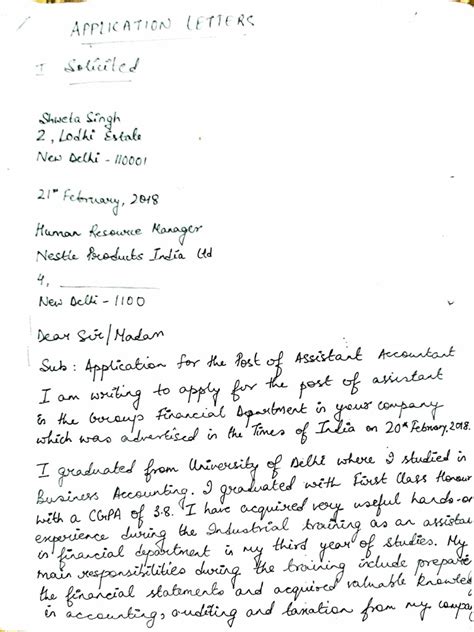 APPLICATION LETTERS
I Solicited
Shweta Singh
2, Lodhi Estate
New Delhi - 110001
21st February, 2018
Human Resource Manager
Nestle Products India Ltd
4,
New Delhi - 1100
Dear Sir/Madam
Sub: Application for the Post of Assistant Accountant
I am writing to apply for the post of assistant
in the Groups Financial Department in your company
which was advertised in the Times of India on 20th February, 2018.
I graduated from University of Delhi where I studied in
Business Accounting. I graduated with First Class Honour
with a CGPA of 3.8. I have acquired very useful hands-on
experience during the Industrial training as an assistan
in financial department in my third year of studies. My
main responsibilities during the training include prepare
the financial statements and acquired valuable knowled
in accounting, auditing and taxation from my compan